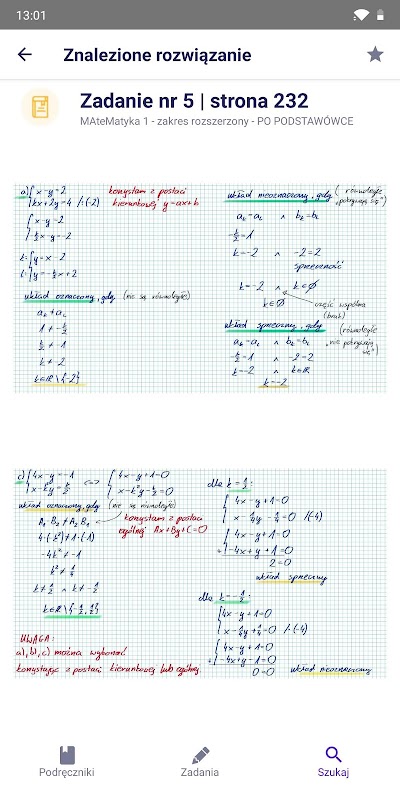 13:01
Znalezione rozwiązanie
Zadanie nr 5 | strona 232
MAteMatyka 1 - zakres rozszerzony - PO PODSTAWÓWCE
a) { x-y=2
kx+2y=4 /:(-2)
korzystam z postaci
kierunkowej y=ax+b
{ x-y=2
-k/2x-y=-2
k: { y=x-2
l: y=-k/2x+2
układ oznaczony, gdy (nie są równoległe)
a₁≠a₂
1≠-k/2
k/2≠-1
k≠-2
k∈R\{-2}
układ nieoznaczony, gdy (równoległe
"pokrywają się")
a₁=a₂ ∧ b₁=b₂
-k/2=1
k=-2 ∧ -2=2
sprzeczność
k=-2 ∧ k∈∅
k∈∅
część wspólna
(brak)
układ sprzeczny, gdy (równoległe
"nie pokrywają
się")
a₁=a₂ ∧ b₁≠b₂
-k/2=1 ∧ -2≠2
k=-2 ∧ k∈R
k=-2
c) { 4x-y=-1
x-k²y=k/2
<=> { 4x-y+1=0
x-k²y-k/2=0
układ oznaczony, gdy (nie są równoległe)
A₁B₂≠A₂B₁
korzystam z postaci
ogólnej Ax+By+C=0
4·(-k²)≠1·(-1)
-4k²≠-1
k²≠1/4
k≠1/2 ∧ k≠-1/2
k∈R\{-1/2, 1/2}
UWAGA:
a), b), c) można wykonać
korzystając z postaci kierunkowej lub ogólnej
dla k=1/2:
{ 4x-y+1=0
x-1/4y-1/4=0 /·(-4)
{ 4x-y+1=0
+ -4x+y+1=0
2=0
układ sprzeczny
dla k=-1/2:
{ 4x-y+1=0
x-1/4y+1/4=0 /·(-4)
{ 4x-y+1=0
+ -4x+y-1=0
0=0 układ nieoznaczony
Podręczniki
Zadania
Szukaj